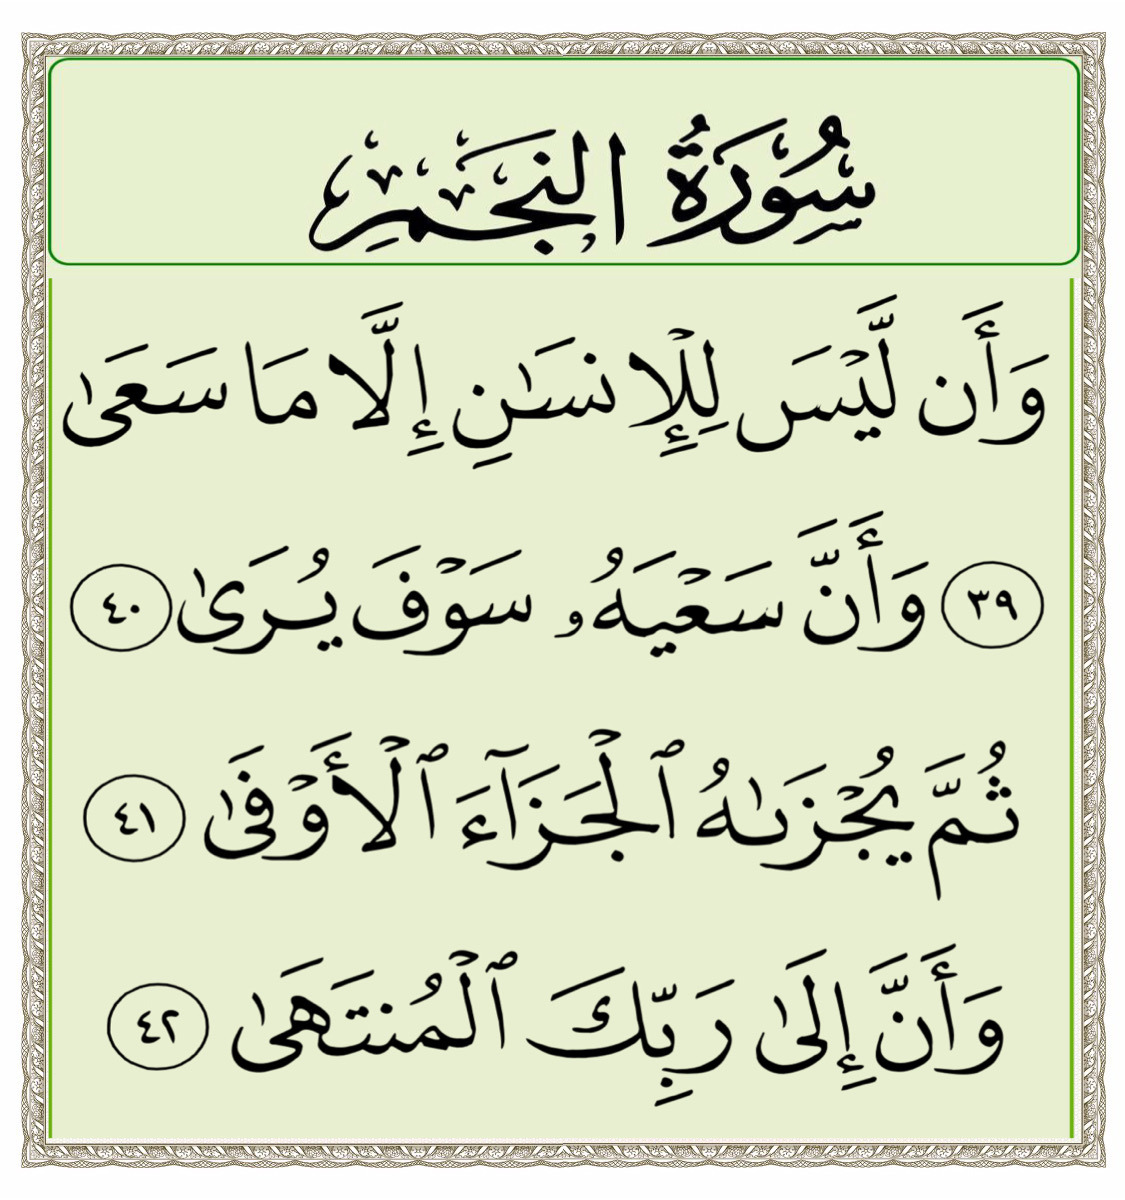 سُورَةُ النَّجْمِ
وَأَن لَّيْسَ لِلْإِنسَٰنِ إِلَّا مَا سَعَىٰ
٣٩ وَأَنَّ سَعْيَهُۥ سَوْفَ يُرَىٰ ٤٠
ثُمَّ يُجْزَىٰهُ ٱلْجَزَآءَ ٱلْأَوْفَىٰ ٤١
وَأَنَّ إِلَىٰ رَبِّكَ ٱلْمُنتَهَىٰ ٤٢